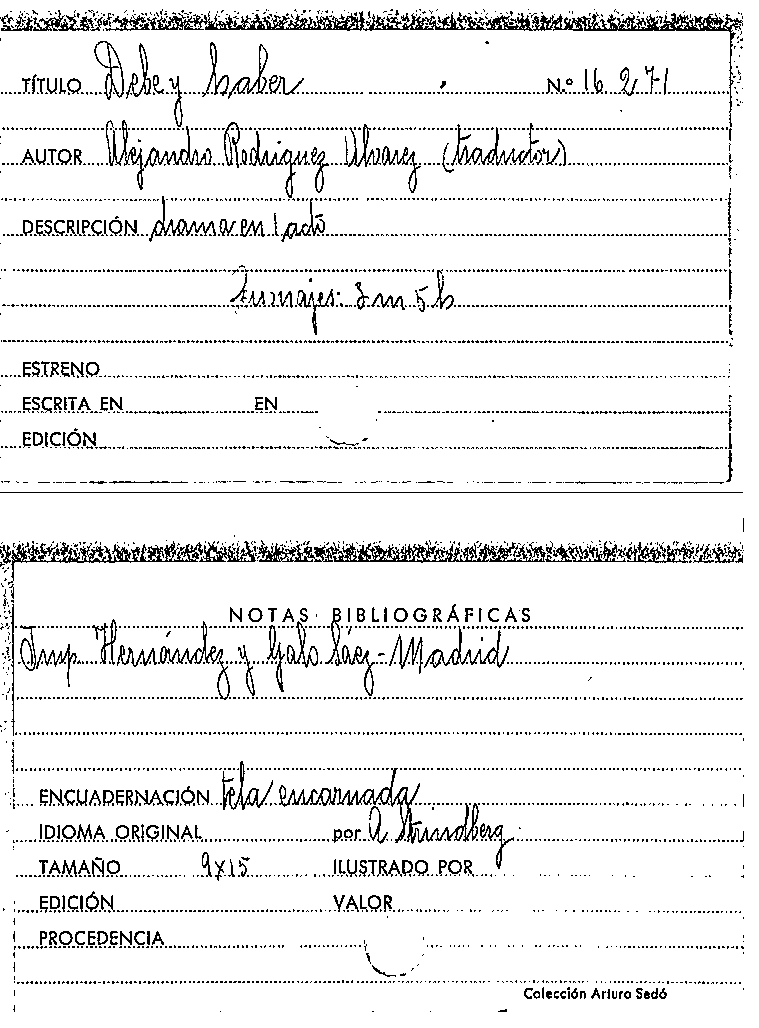 TÍTULO Debe y haber N.º 16 271
AUTOR Alejandro Rodriguez Alvarez (traductor)
DESCRIPCIÓN drama en 1 acto
3 m 5 h
ESTRENO
ESCRITA EN EN
EDICIÓN
NOTAS BIBLIOGRÁFICAS
Imp. Hernández y Galo Sáez - Madrid
ENCUADERNACIÓN tela encarnada
IDIOMA ORIGINAL por A. Strindberg
TAMAÑO 9x15 ILUSTRADO POR
EDICIÓN VALOR
PROCEDENCIA
Colección Arturo Sedó